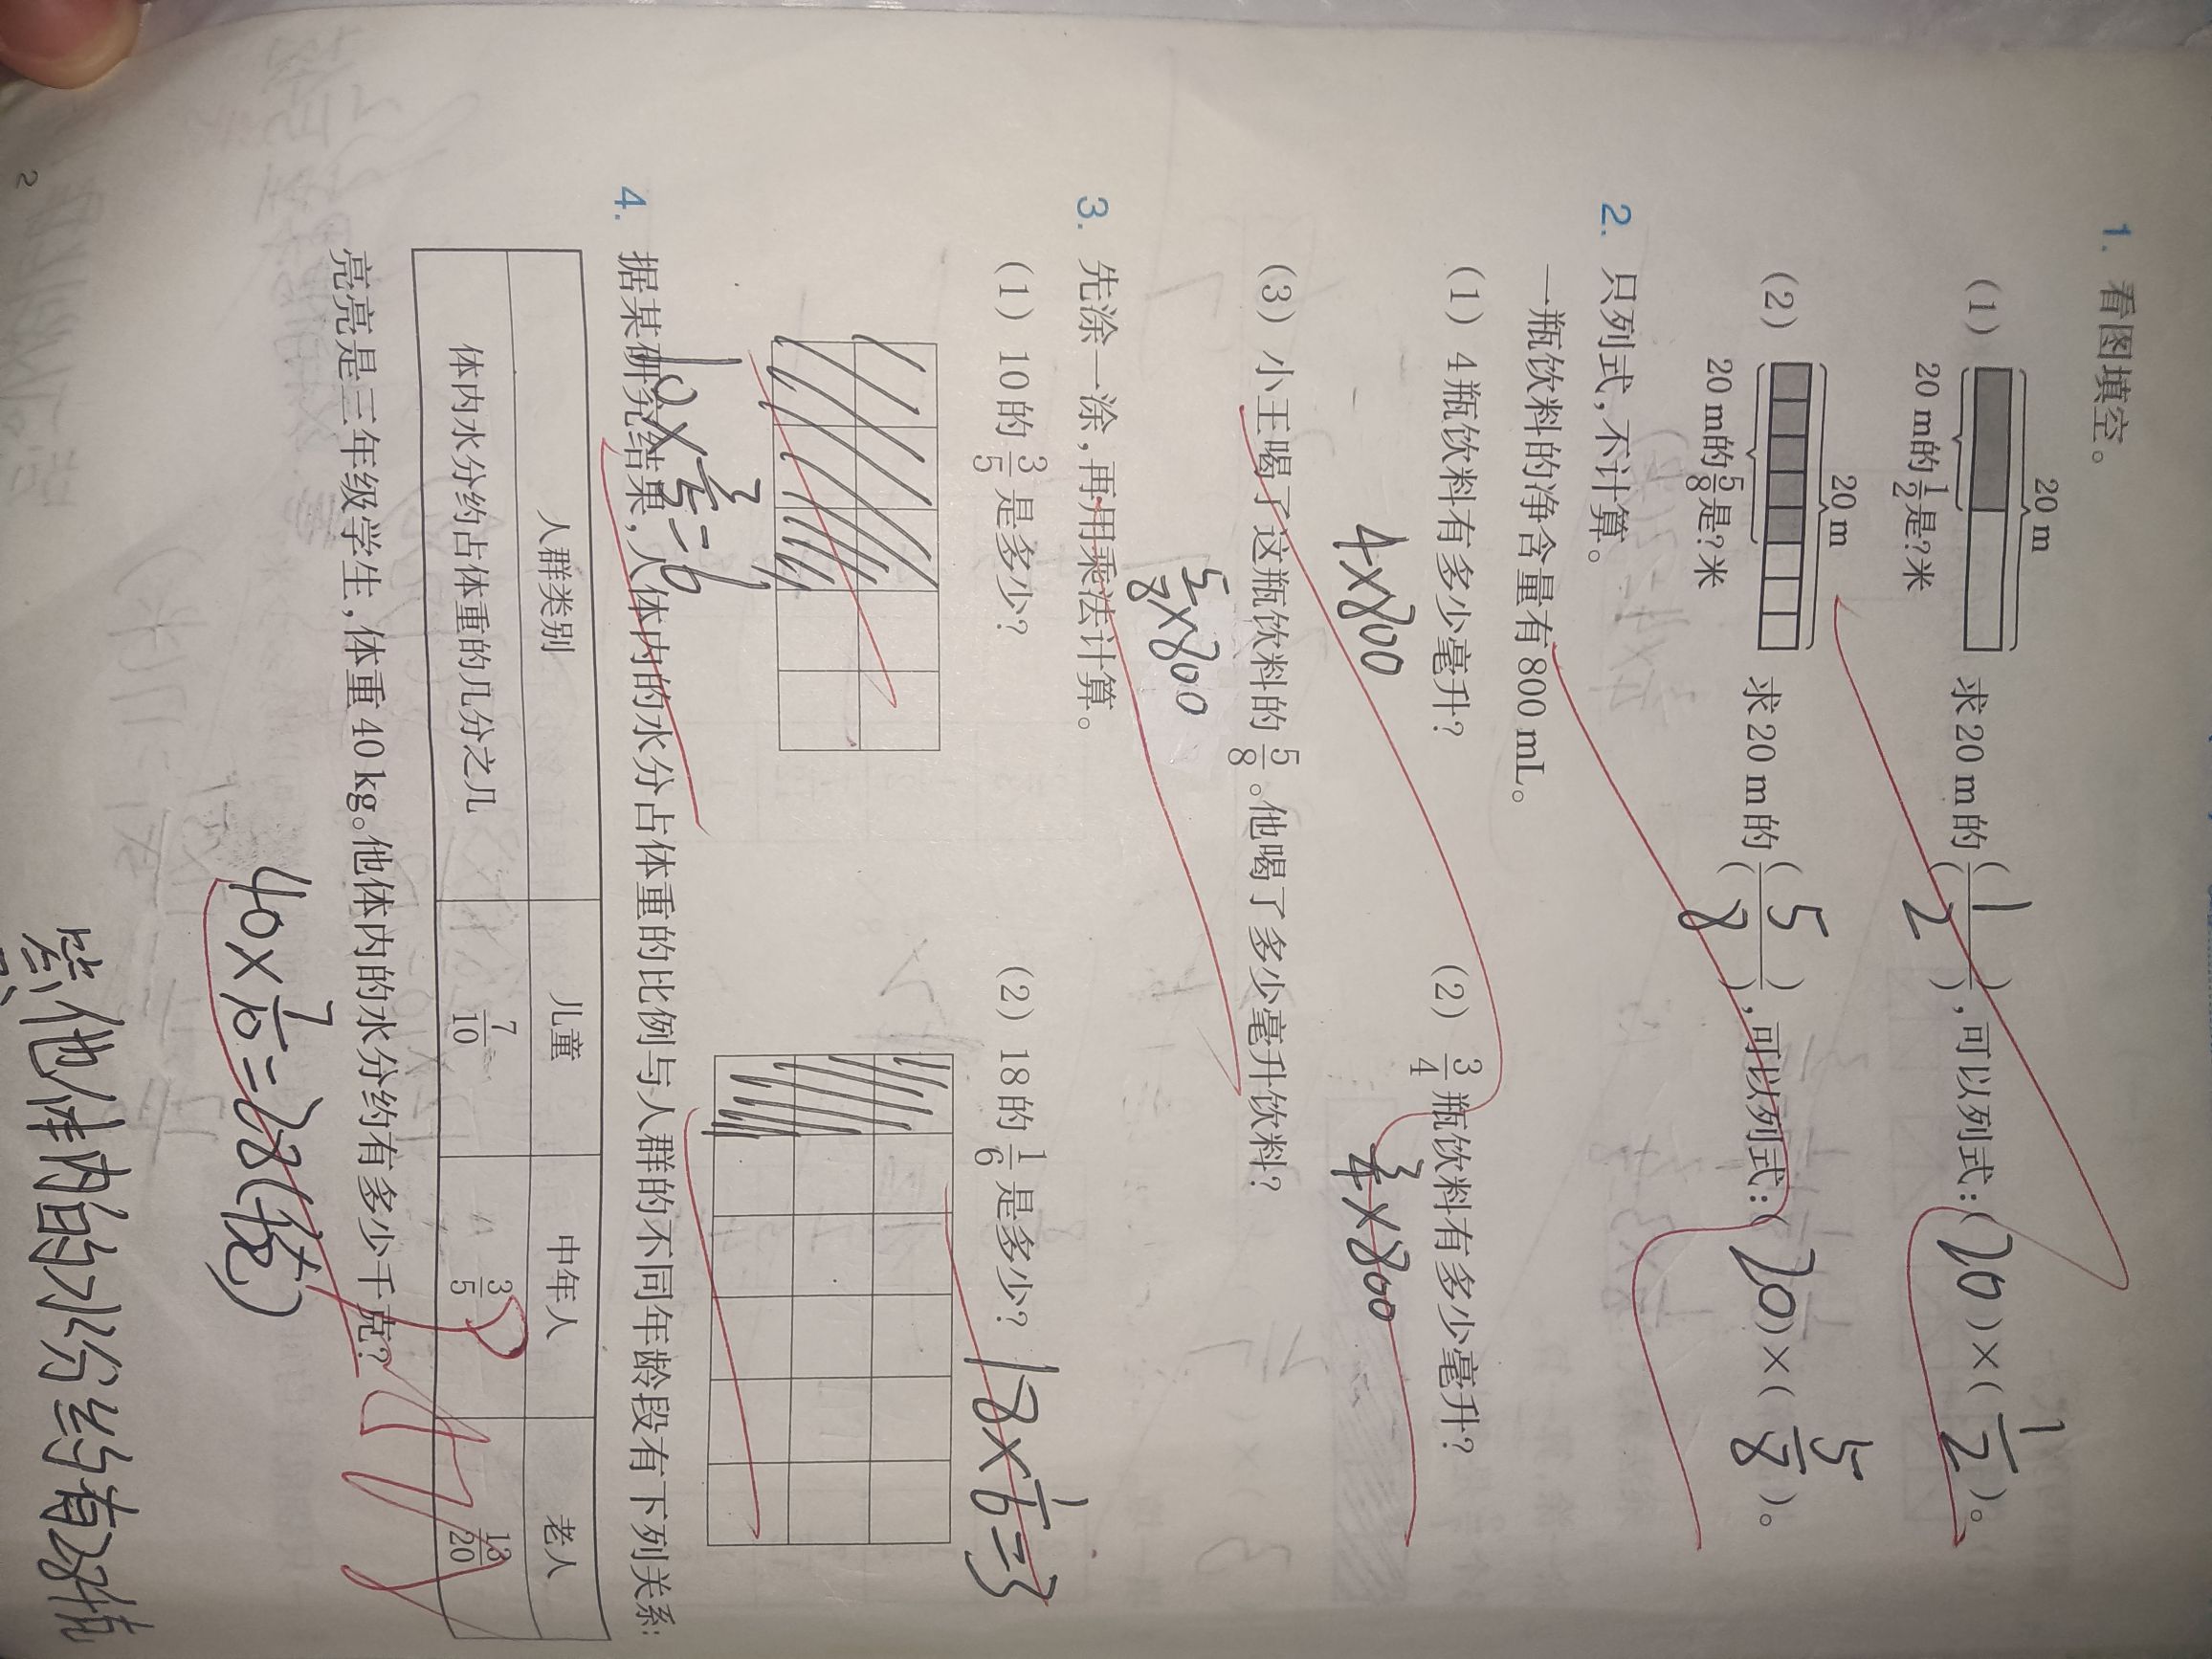 1. 看图填空。
20 m
(1) 求20 m的(1/2),可以列式:(20)×(1/2)。
20 m的1/2是?米
20 m
(2) 求20 m的(5/8),可以列式:(20)×(5/8)。
20 m的5/8是?米
2. 只列式,不计算。
一瓶饮料的净含量有800 mL。
(1) 4瓶饮料有多少毫升? (2) 3/4瓶饮料有多少毫升?
4×800 3/4×800
(3) 小王喝了这瓶饮料的5/8。他喝了多少毫升饮料?
5/8×800
3. 先涂一涂,再用乘法计算。
(1) 10的3/5是多少? (2) 18的1/6是多少? 18×1/6=3
10×3/5=6
4. 据某研究结果,人体内的水分占体重的比例与人群的不同年龄段有下列关系:
人群类别 儿童 中年人 老人
体内水分约占体重的几分之几 7/10 3/5 13/20
亮亮是三年级学生,体重40 kg。他体内的水分约有多少千克?
40×7/10=28(千克)
答:他体内的水分约有28千克
2